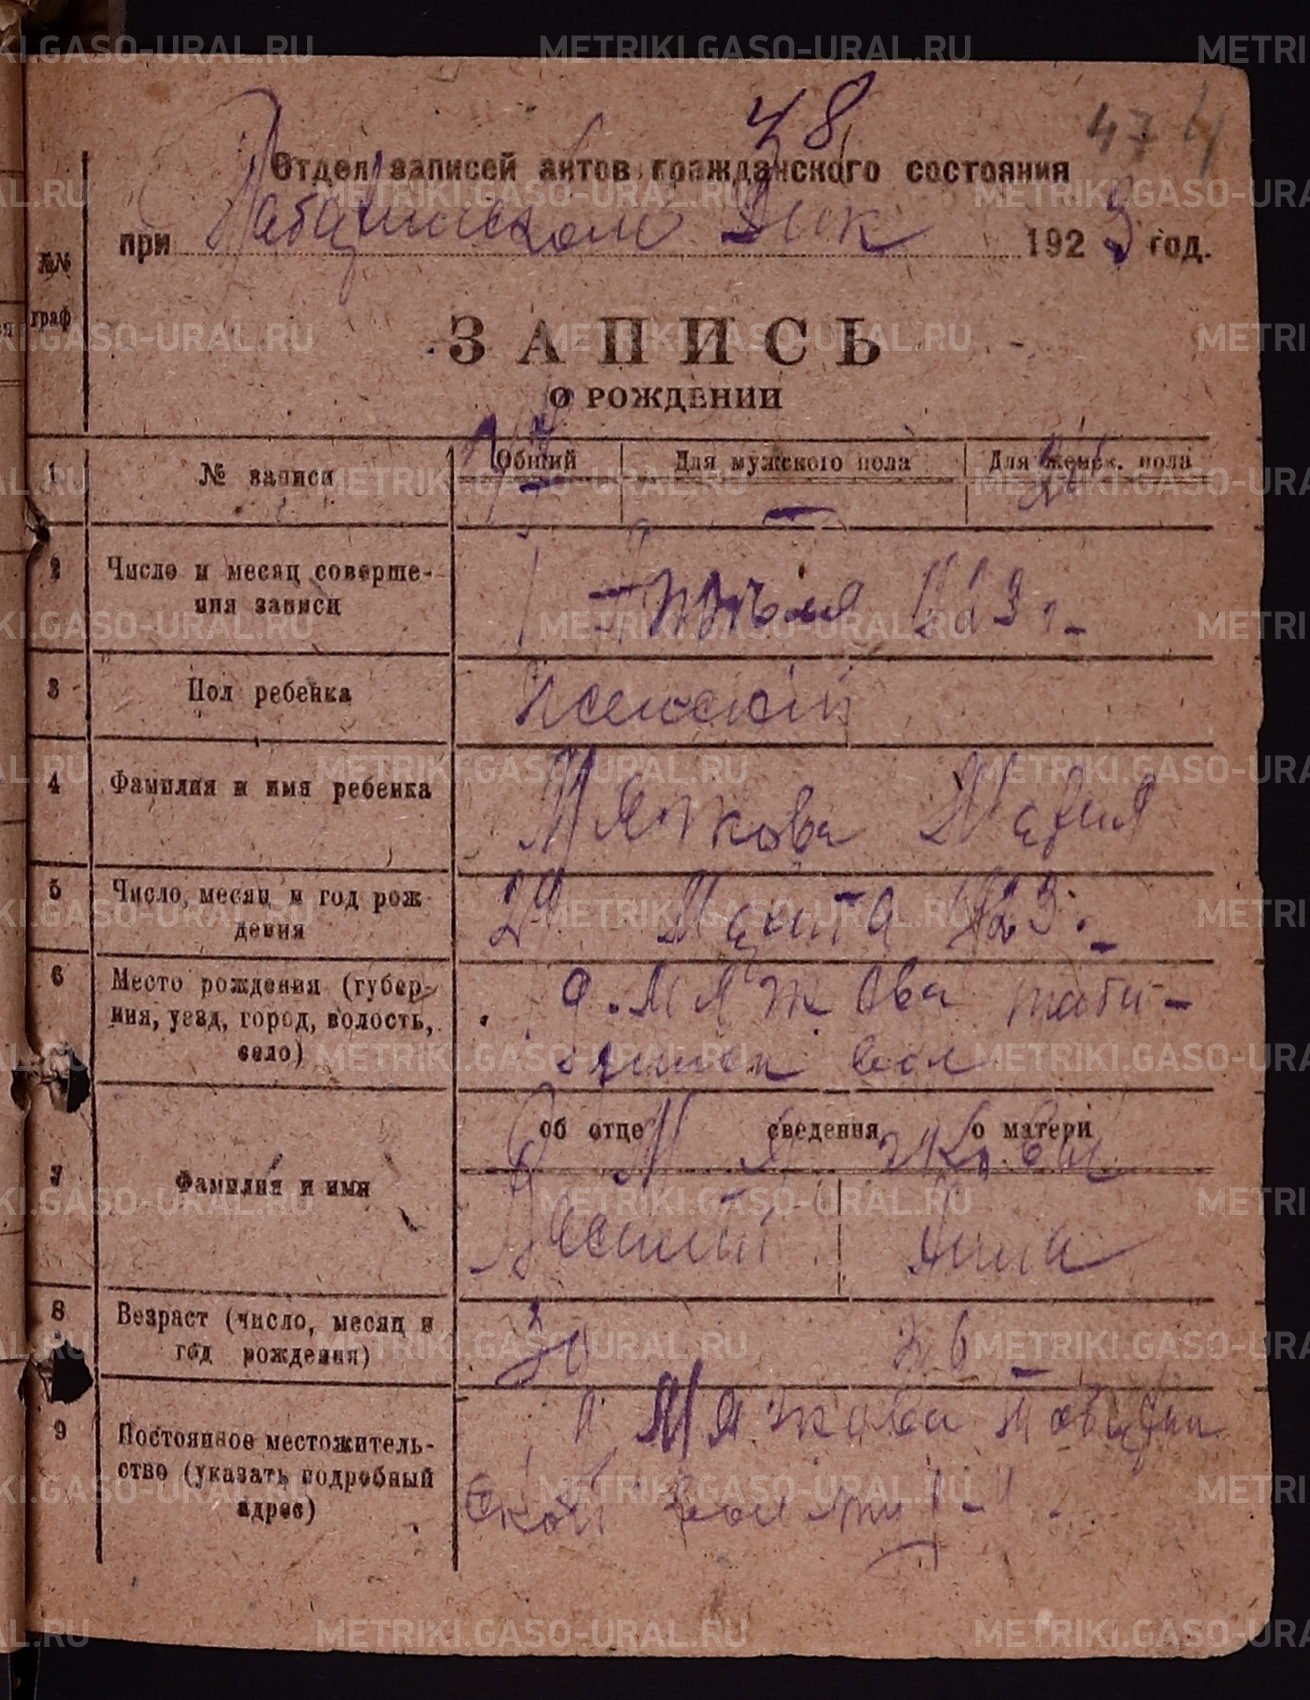 48
474
Отдел записей актов гражданского состояния
при Табацинском Вик 1923 год.
№№ граф
ЗАПИСЬ
О РОЖДЕНИИ
1 № записи Общий Для мужского пола Для женск. пола
—
2 Число и месяц соверше-
ния записи
1 Апреля 1923 г.
3 Пол ребенка Женский
4 Фамилия и имя ребенка Мяжкова Мария
5 Число, месяц и год рож
дения
Марта 1923.
6 Место рождения (губер-
ния, уезд, город, волость,
село)
д. Мяжкова таби-
вол
об отце сведения о матери
7 Фамилия и имя
Мяжковы
Василий Анна
8 Возраст (число, месяц и
год рождения)
30 26
9 Постоянное местожитель-
ство (указать подробный
адрес)
Мяжкова
ской вол
METRIKI.GASO-URAL.RU